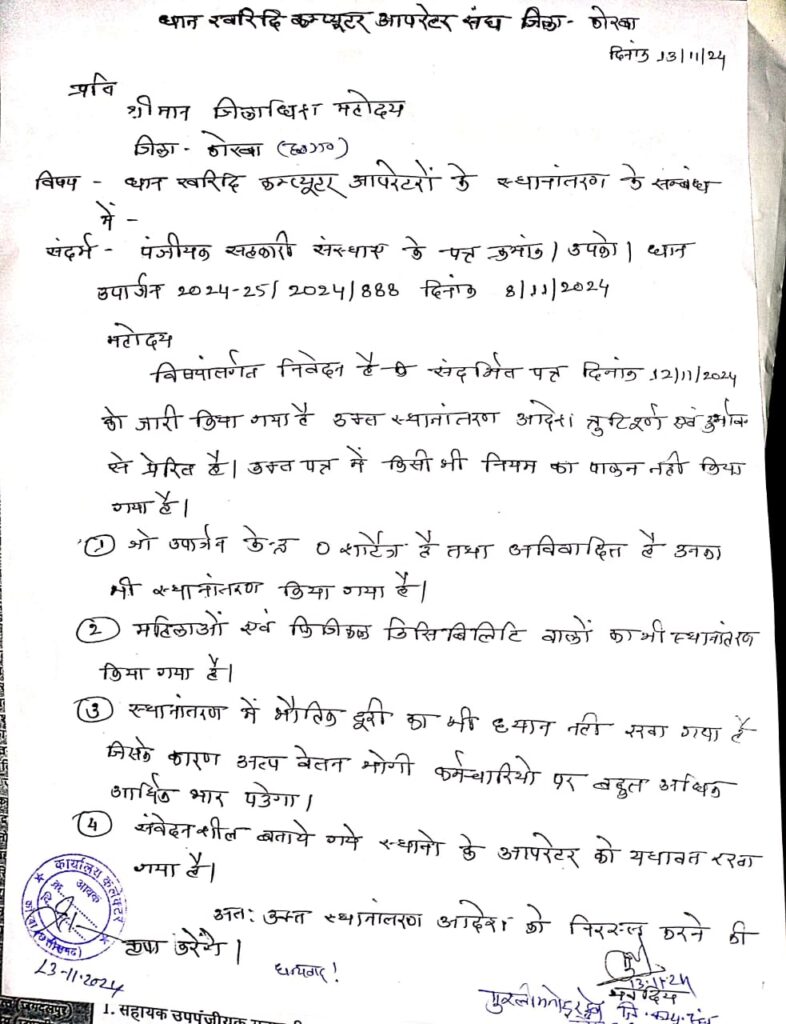 धान खरिदि कम्प्यूटर आपरेटर संघ जिला - कोरबा
दिनांक 13/11/24
प्रति
श्रीमान जिलाधिश महोदय
जिला - कोरबा (छ०ग०)
विषय - धान खरिदि कम्प्यूटर आपरेटरों के स्थानांतरण के सम्बंध
में -
संदर्भ - पंजीयक सहकारी संस्थाए के पत्र क्रमांक / उपको / धान
उपार्जन 2024-25/ 2024/888 दिनांक 8/11/2024
महोदय
विषयांतर्गत निवेदन है कि संदर्भित पत्र दिनांक 12/11/2024
को जारी किया गया है उक्त स्थानांतरण आदेश त्रुटिपूर्ण एवं
से प्रेरित है। उक्त पत्र में किसी भी नियम का पालन नही किया
गया है।
1 जो उपार्जन केन्द्र 0 शार्टेज है तथा अविवादित है उनका
भी स्थानांतरण किया गया है।
2 महिलाओं एवं फिजिकल डिसेबिलिटि वालों का भी स्थानांतरण
किया गया है।
3 स्थानांतरण में भौतिक दूरी का भी ध्यान नही रखा गया है
जिसके कारण अल्प वेतन भोगी कर्मचारियो पर बहुत अधिक
आर्थिक भार पडेगा।
4 संवेदनशील बताये गये स्थानो के आपरेटर को यथावत रखा
गया है।
अतः उक्त स्थानांतरण आदेश को निरस्त करने की
कृपा करेंगे।
धन्यवाद!
कार्यालय कलेक्टर
आवक
कोरबा (छत्तीसगढ़)
13-11-2024
13.11.24
(जगदलपुर)
1. सहायक उपपंजीयक